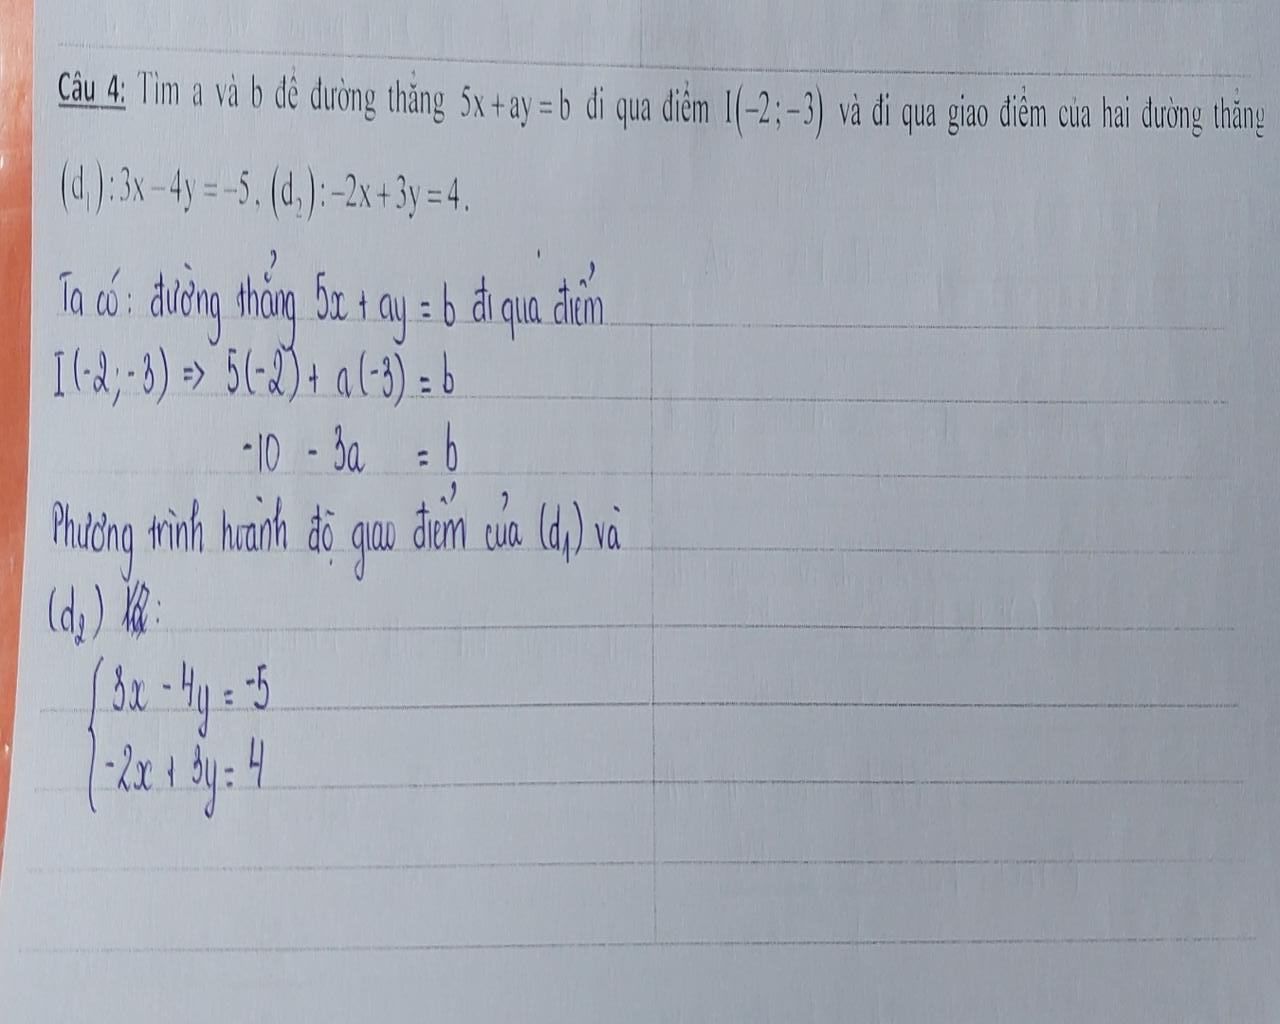 Câu 4: Tìm a và b để đường thẳng 5x + ay = b đi qua điểm I(−2; −3) và đi qua giao điểm của hai đường thẳng
(d₁): 3x − 4y = −5, (d₂): −2x + 3y = 4.
Ta có: đường thẳng 5x + ay = b đi qua điểm
I(-2; -3) => 5(-2) + a(-3) = b
-10 - 3a = b
Phương trình hoành độ giao điểm của (d₁) và
(d₂) :
{ 3x - 4y = -5
-2x + 3y = 4